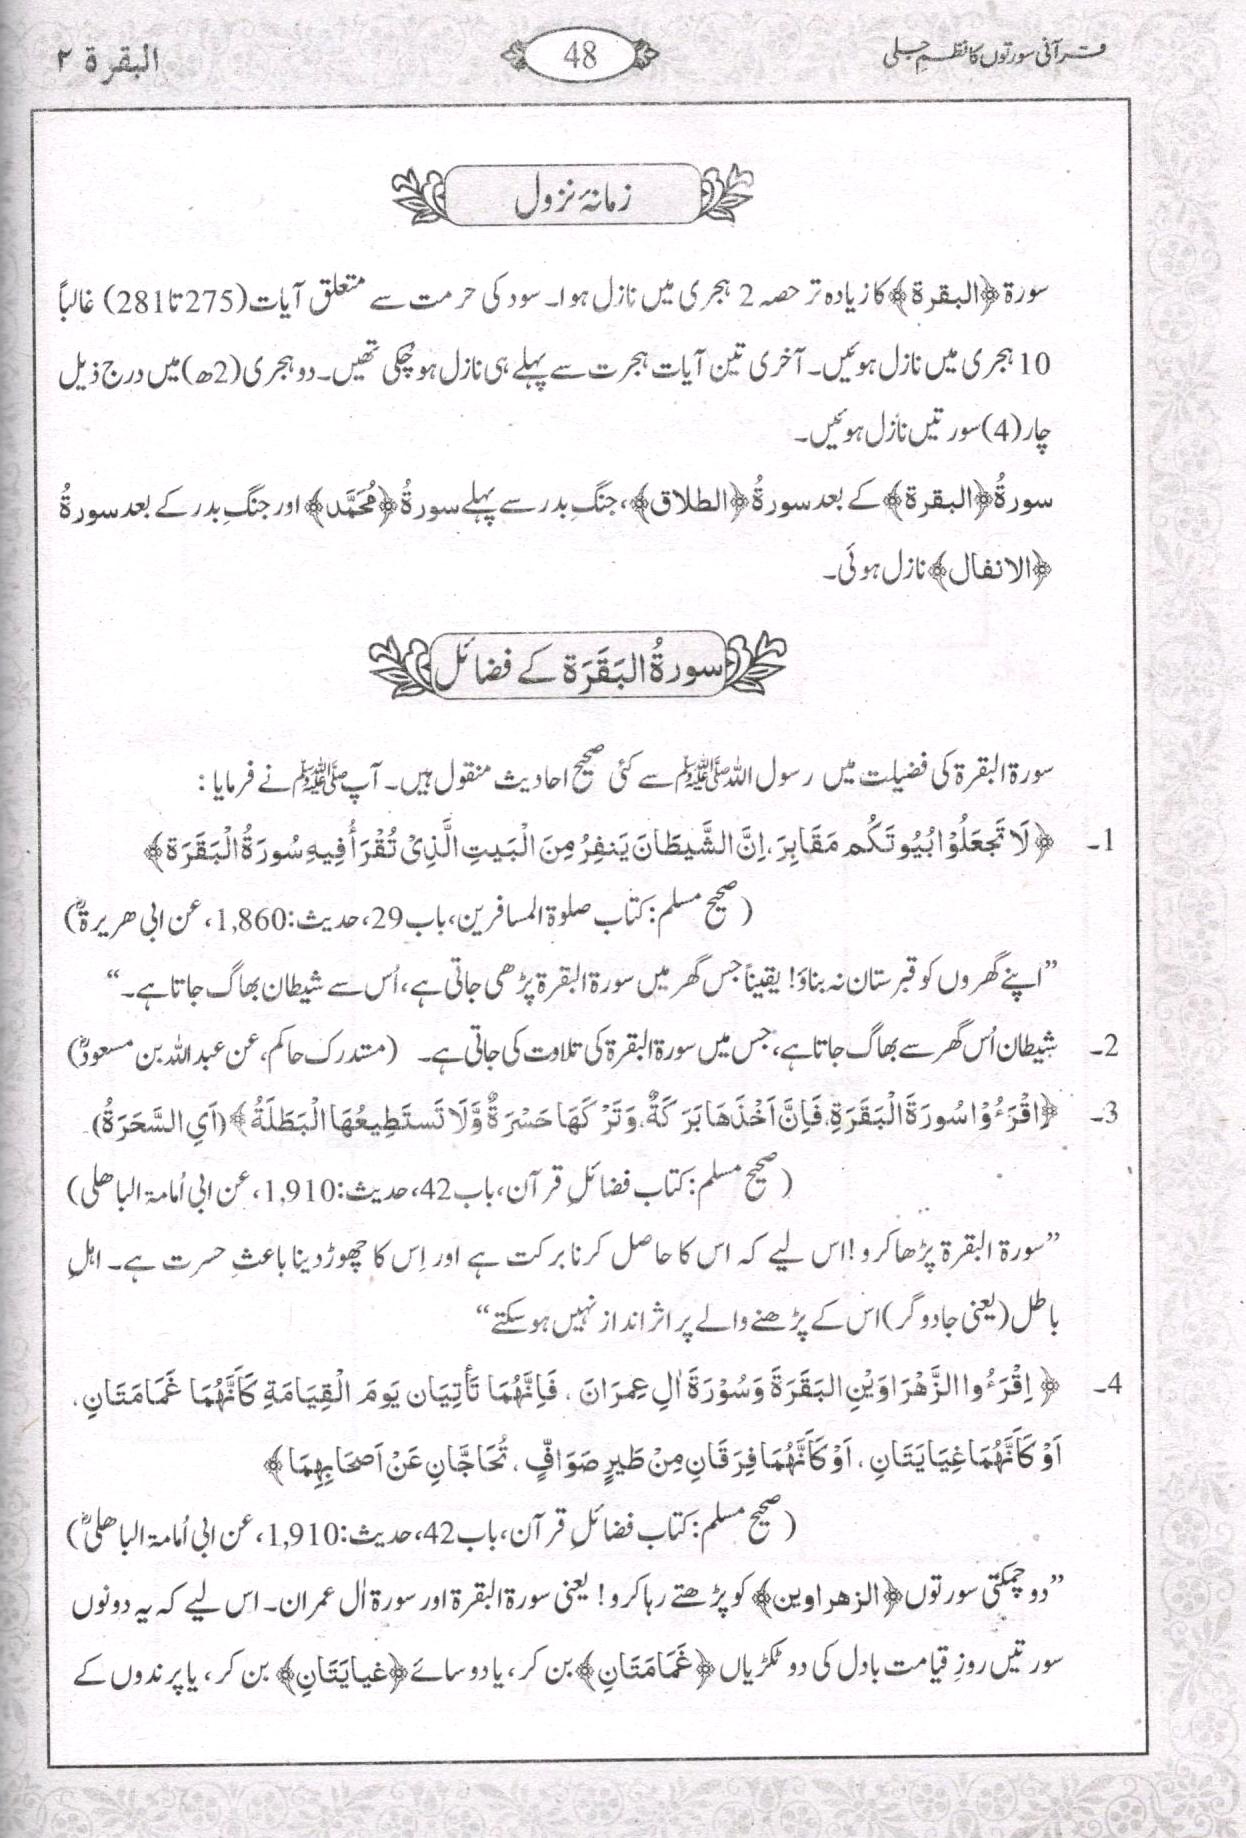 قرآنی سورتوں کا نظمِ جلی
48
البقرة ۲
زمانۂ نزول
سورة ﴿البقرة﴾ کا زیادہ تر حصہ 2 ہجری میں نازل ہوا۔ سود کی حرمت سے متعلق آیات (275 تا 281) غالباً
10 ہجری میں نازل ہوئیں۔ آخری تین آیات ہجرت سے پہلے ہی نازل ہو چُکی تھیں۔ دو ہجری (2ھ) میں درج ذیل
چار (4) سورتیں نازل ہوئیں۔
سورةُ ﴿البقرة﴾ کے بعد سورةُ ﴿الطلاق﴾، جنگِ بدر سے پہلے سورةُ ﴿مُحَمَّد﴾ اور جنگِ بدر کے بعد سورةُ
﴿الانفال﴾ نازل ہوئی۔
سورةُ البَقَرَة کے فضائل
سورة البقرة کی فضیلت میں رسول اللہ ﷺ سے کئی صحیح احادیث منقول ہیں۔ آپ ﷺ نے فرمایا :
1۔ ﴿لَا تَجعَلُوْا بُيُوتَكُم مَقَابِرَ، اِنَّ الشَّيطَانَ يَنفِرُ مِنَ الْبَيتِ الَّذِىْ تُقْرَأُ فِيهِ سُورَةُ الْبَقَرَة﴾
(صحیح مسلم: کتاب صلوة المسافرین، باب 29، حدیث: 1,860، عن ابی هریرةؓ)
”اپنے گھروں کو قبرستان نہ بناؤ! یقیناً جس گھر میں سورة البقرة پڑھی جاتی ہے، اُس سے شیطان بھاگ جاتا ہے۔“
2۔ شیطان اُس گھر سے بھاگ جاتا ہے، جس میں سورة البقرة کی تلاوت کی جاتی ہے۔ (مستدرک حاکم، عن عبد اللہ بن مسعودؓ)
3۔ ﴿اقْرَءُوْا سُورَةَ الْبَقَرَةِ، فَاِنَّ اَخْذَهَا بَرَكَةٌ، وَتَرْكَهَا حَسْرَةٌ وَّلَا تَستَطِيعُهَا الْبَطَلَةُ﴾ (اَيِ السَّحَرَةُ)۔
(صحیح مسلم: کتاب فضائلِ قرآن، باب 42، حدیث: 1,910، عن ابی اُمامة الباهلی)
”سورة البقرة پڑھا کرو! اس لیے کہ اس کا حاصل کرنا برکت ہے اور اِس کا چھوڑ دینا باعثِ حسرت ہے۔ اہلِ
باطل (یعنی جادو گر) اس کے پڑھنے والے پر اثر انداز نہیں ہو سکتے“
4۔ ﴿اِقْرَءُوا الزَّهْرَاوَيْنِ البَقَرَةَ وَسُوْرَةَ اٰلِ عِمرَانَ، فَاِنَّهُمَا تَأتِيَان يَومَ الْقِيَامَةِ كَاَنَّهُمَا غَمَامَتَانِ،
اَوْ كَاَنَّهُمَا غِيَايَتَانِ، اَوْ كَاَنَّهُمَا فِرَقَانِ مِنْ طَيرٍ صَوَافٍّ، تُحَاجَّانِ عَنْ اَصحَابِهِمَا﴾
(صحیح مسلم: کتاب فضائلِ قرآن، باب 42، حدیث: 1,910، عن ابی اُمامة الباهلیؓ)
”دو چمکتی سورتوں ﴿الزهراوين﴾ کو پڑھتے رہا کرو! یعنی سورة البقرة اور سورة اٰل عمران۔ اس لیے کہ یہ دونوں
سورتیں روزِ قیامت بادل کی دو ٹکڑیاں ﴿غَمَامَتَانِ﴾ بن کر، یا دو سائے ﴿غيايَتَانِ﴾ بن کر، یا پرندوں کے